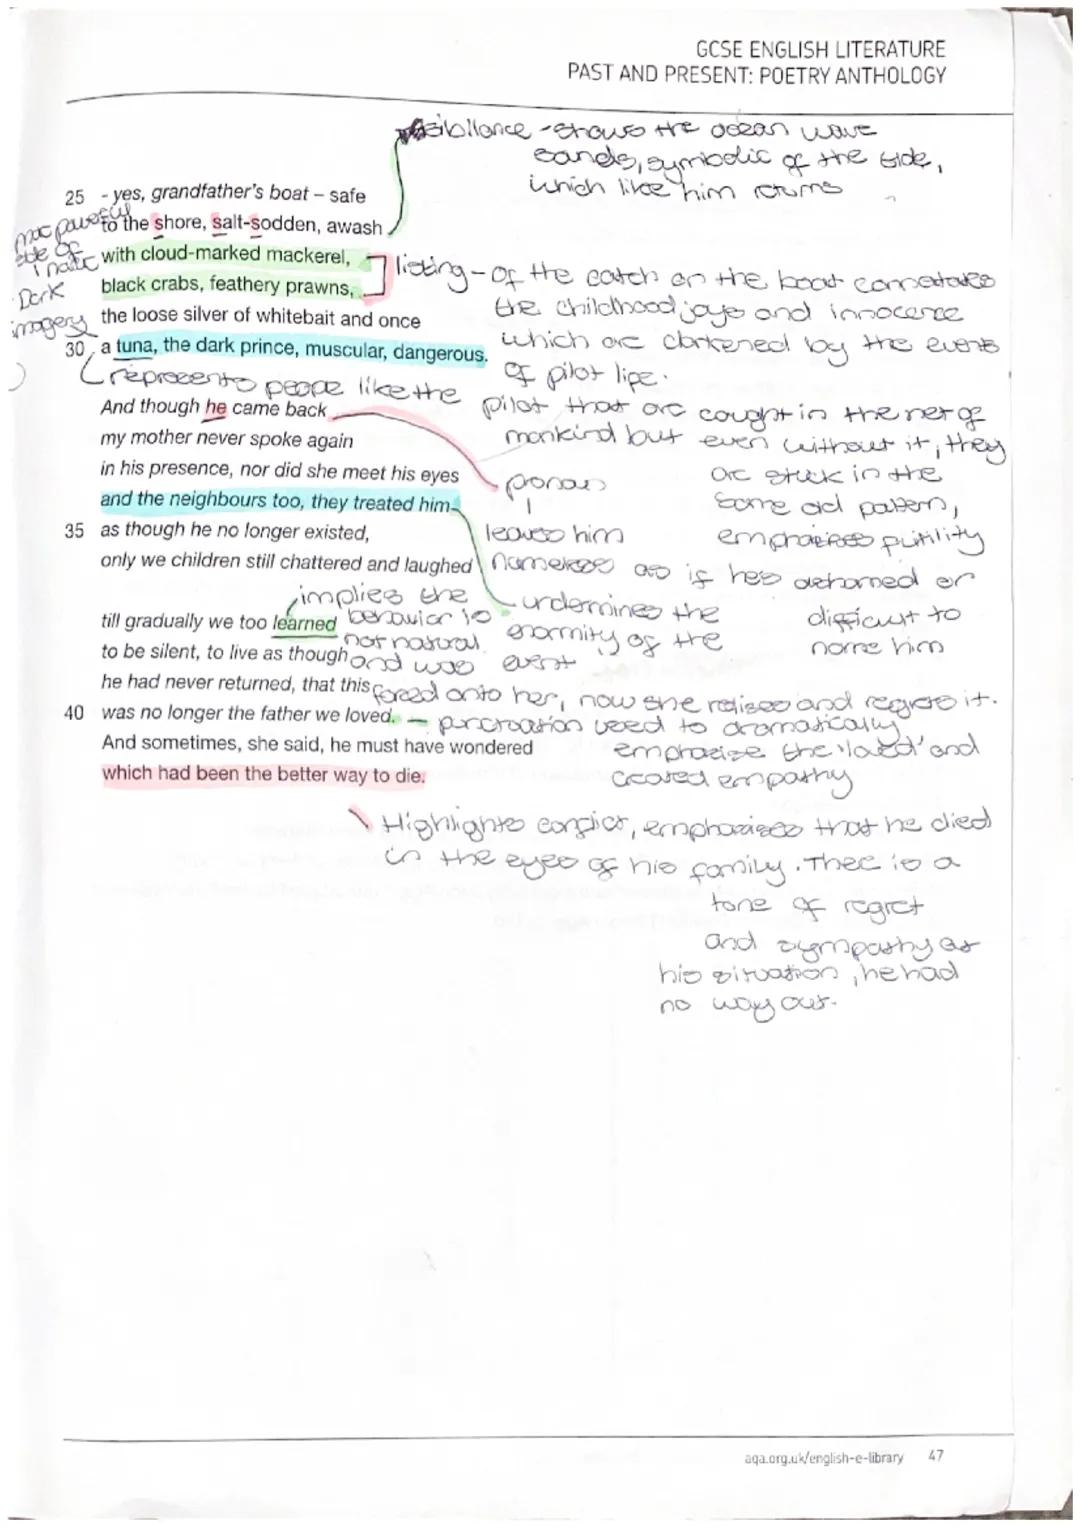 GCSE ENGLISH LITERATURE
PAST AND PRESENT: POETRY ANTHOLOGY
sibilance - shows the ocean wave
sounds, symbolic of the tide,
which like him returns
25 - yes, grandfather's boat – safe
to the shore, salt-sodden, awash
with cloud-marked mackerel,
black crabs, feathery prawns,
the loose silver of whitebait and once
30 a tuna, the dark prince, muscular, dangerous.
most powerful
side of
nature
Dark
imagery
listing - of the catch on the boat connotates
the childhood joys and innocence
which are darkened by the events
of pilot life.
represents people like the
pilot that are caught in the net of
mankind but even without it, they
are stuck in the
same old pattern,
emphasises futility
And though he came back
my mother never spoke again
in his presence, nor did she meet his eyes
and the neighbours too, they treated him
35 as though he no longer existed,
only we children still chattered and laughed
pronoun
leaves him
nameless as if hes ashamed or
difficult to
name him
undermines the
enormity of the
event
implies the
behaviour is
not natural
and was
forced onto her, now she relises and regrets it.
till gradually we too learned
to be silent, to live as though
he had never returned, that this
40 was no longer the father we loved.
And sometimes, she said, he must have wondered
which had been the better way to die.
- punctuation used to dramatically
emphasise the 'loved' and
created empathy
Highlights conflict, emphasises that he died
in the eyes of his family. There is a
tone of regret
and sympathy at
his situation, he had
no way out.
aqa.org.uk/english-e-library 47